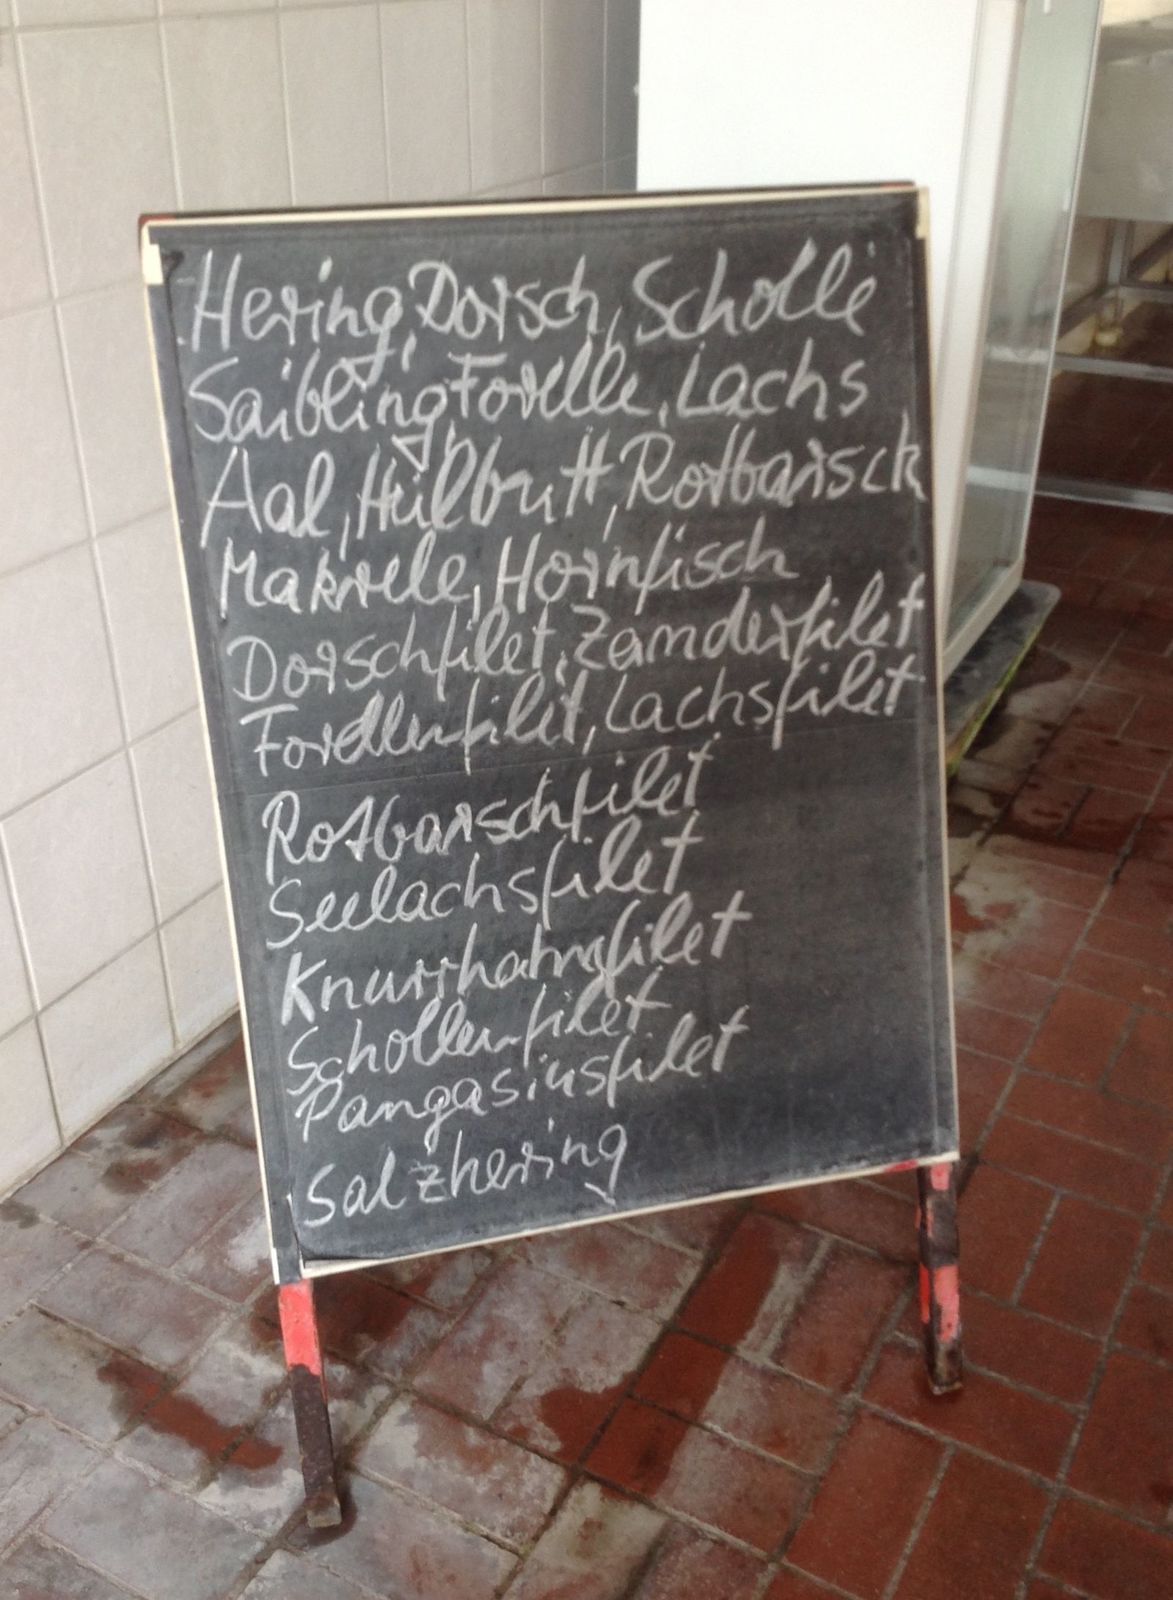 Hering, Dorsch, Scholle
Saibling, Forelle, Lachs
Aal, Hilbutt, Rotbarsch
Makrele, Hornfisch
Dorschfilet, Zanderfilet
Forellenfilet, Lachsfilet
Rotbarschfilet
Seelachsfilet
Knurrhahnfilet
Schollenfilet
Pangasiusfilet
Salzhering